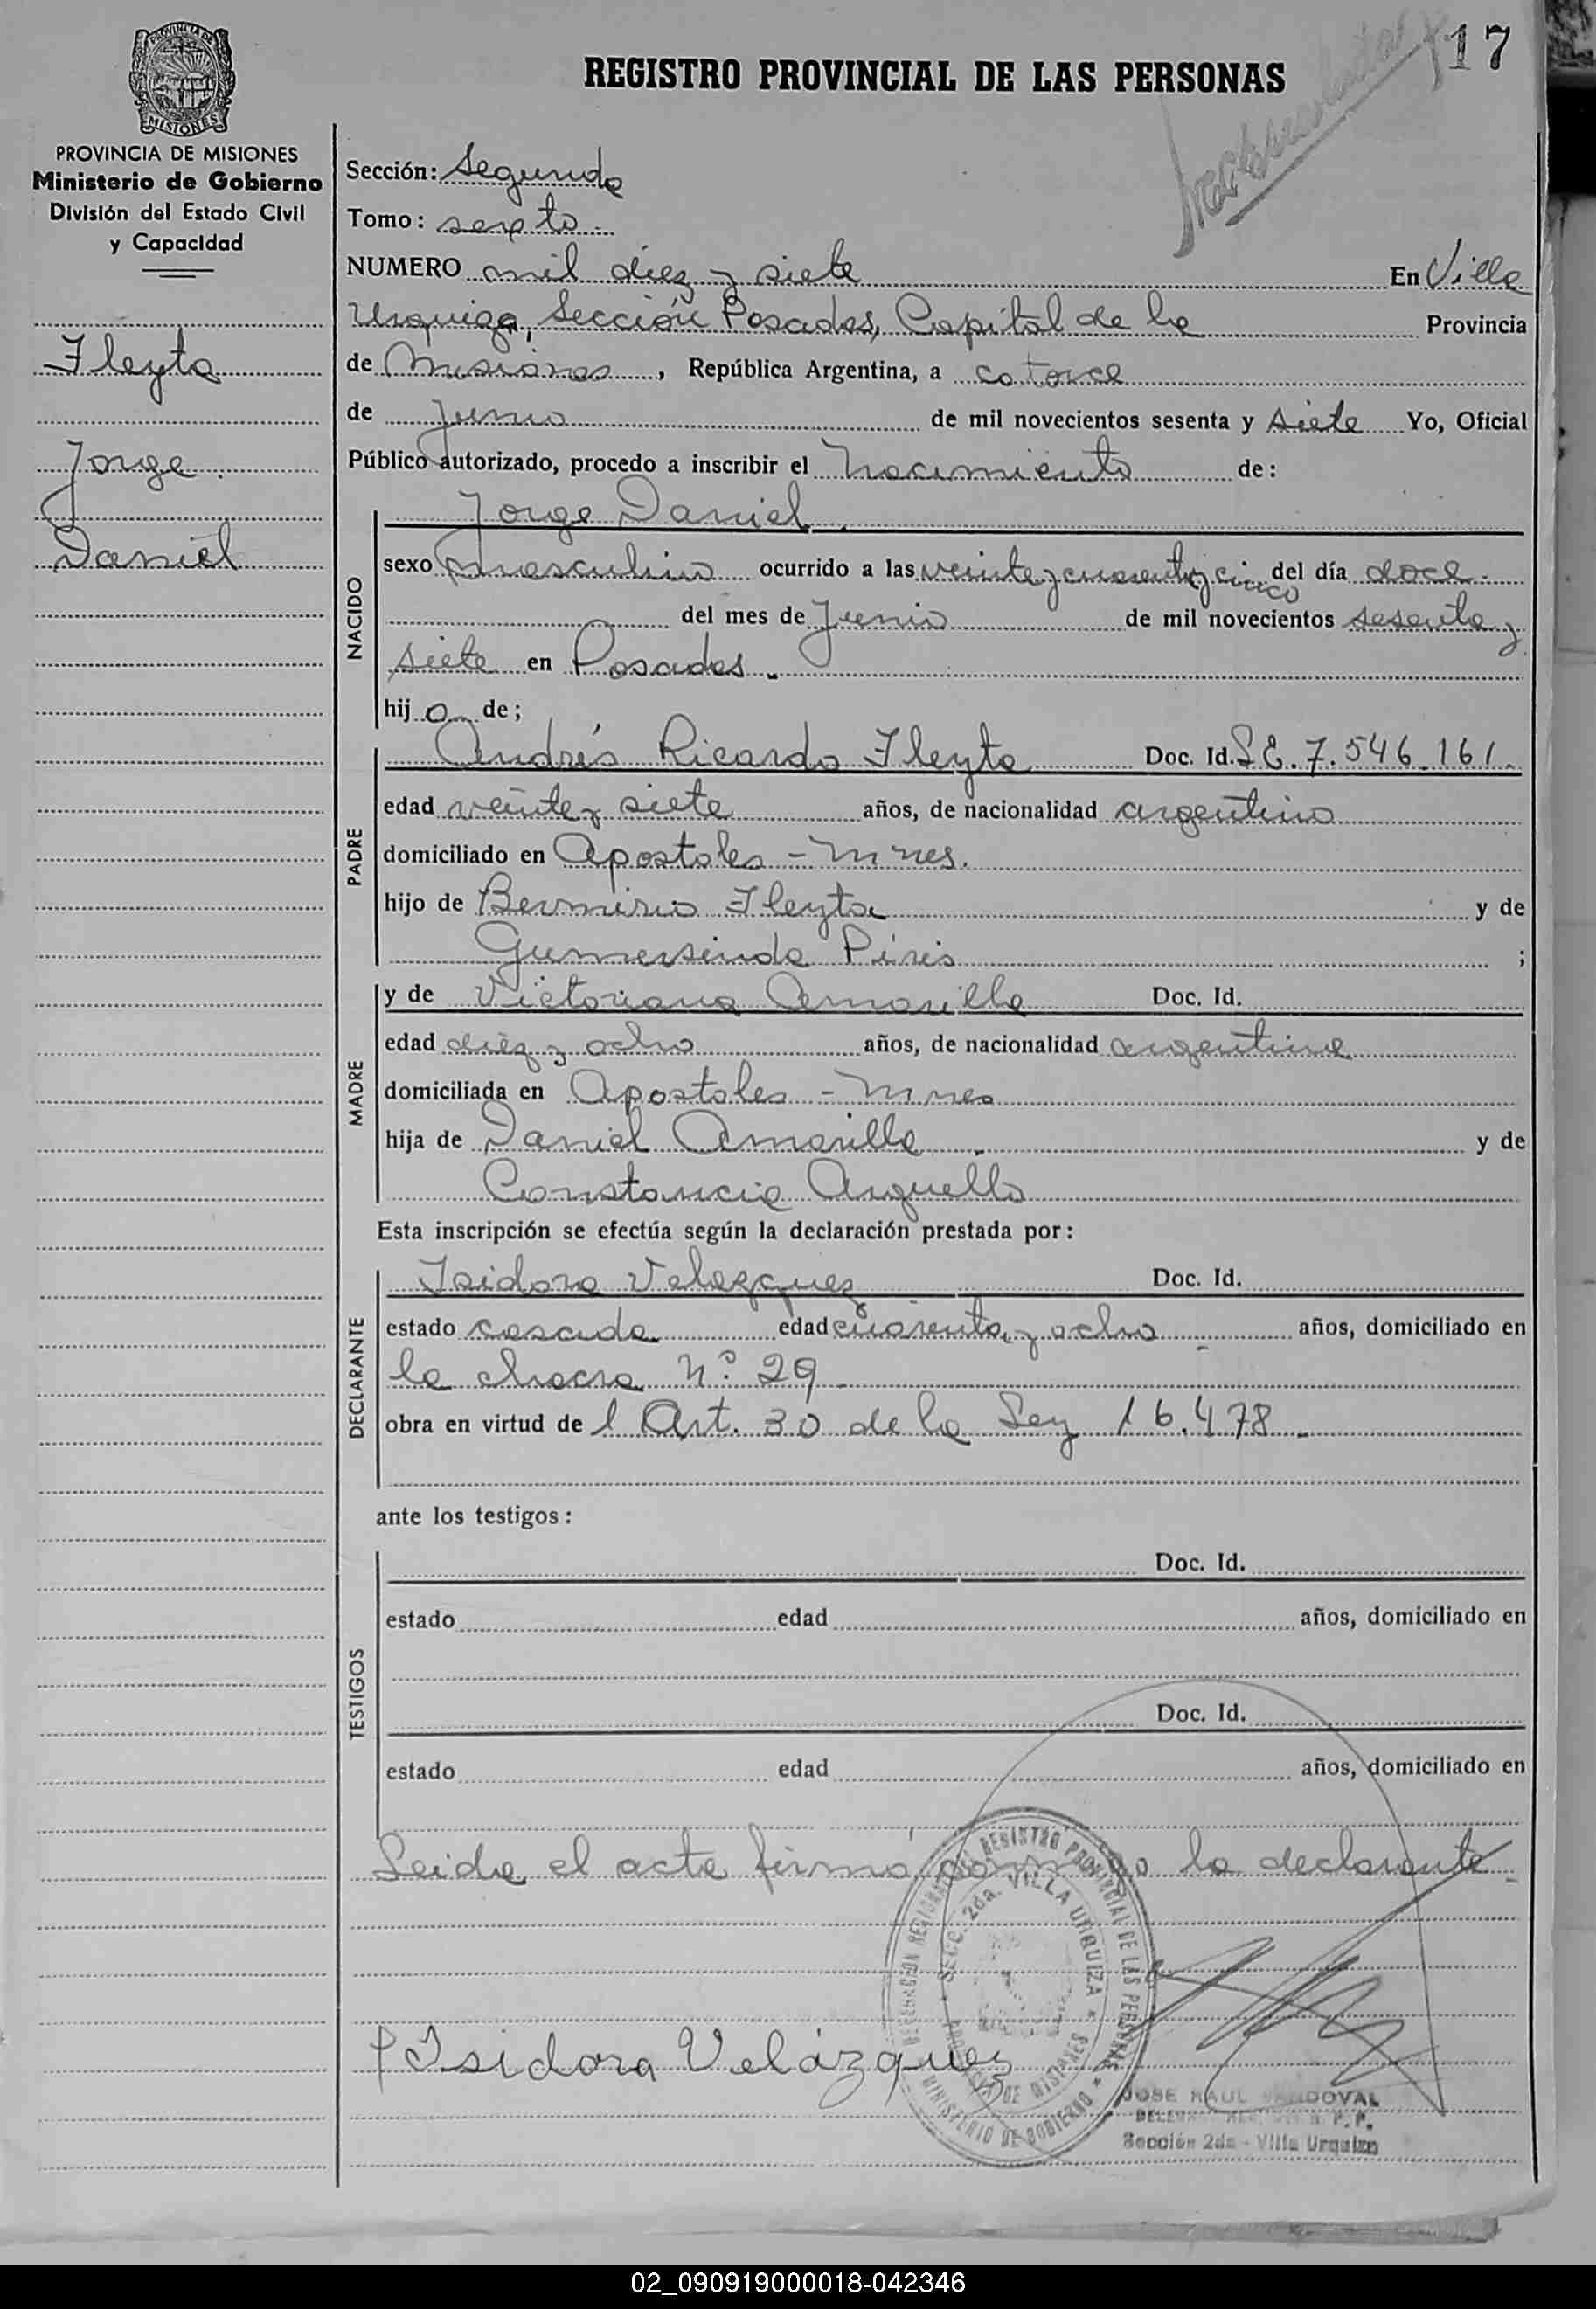 17
REGISTRO PROVINCIAL DE LAS PERSONAS
MISIONES
PROVINCIA DE MISIONES
Ministerio de Gobierno
División del Estado Civil
y Capacidad
Fleyta
Jorge
Daniel
Sección: Segunda
Tomo: sexto
NUMERO mil diez y siete En Villa
Urquiza, Sección Posadas, Capital de la Provincia
de Misiones, República Argentina, a catorce
de Junio de mil novecientos sesenta y siete Yo, Oficial
Público autorizado, procedo a inscribir el Nacimiento de:
NACIDO
Jorge Daniel
sexo masculino ocurrido a las veinte y cuarenta y cinco del día doce
del mes de Junio de mil novecientos sesenta y
siete en Posadas.-
hijo de;
PADRE
Andrés Ricardo Fleyta Doc. Id. L E. 7.546.161
edad veinte y siete años, de nacionalidad argentino
domiciliado en Apostoles - Mnes.
hijo de Bermirio Fleyta y de
Gumersinda Piris ;
MADRE
y de Victoriana Amarilla Doc. Id.
edad diez y ocho años, de nacionalidad argentina
domiciliada en Apostoles - Mnes
hija de Daniel Amarilla y de
Constancia Arguello
Esta inscripción se efectúa según la declaración prestada por:
DECLARANTE
Isidora Velazquez Doc. Id.
estado casada edad cuarenta y ocho años, domiciliado en
la chacra N° 29
obra en virtud de l Art. 30 de la Ley 16.478.-
ante los testigos:
TESTIGOS
Doc. Id.
estado edad años, domiciliado en
Doc. Id.
estado edad años, domiciliado en
Leida el acta firmó conmigo la declarante
REGISTRO PROVINCIAL DE LAS PERSONAS
Secc. 2da. VILLA URQUIZA
PROVINCIA DE MISIONES
MINISTERIO DE GOBIERNO
Isidora Velázquez
JOSE RAUL SANDOVAL
Sección 2da - Villa Urquiza
02_090919000018-042346